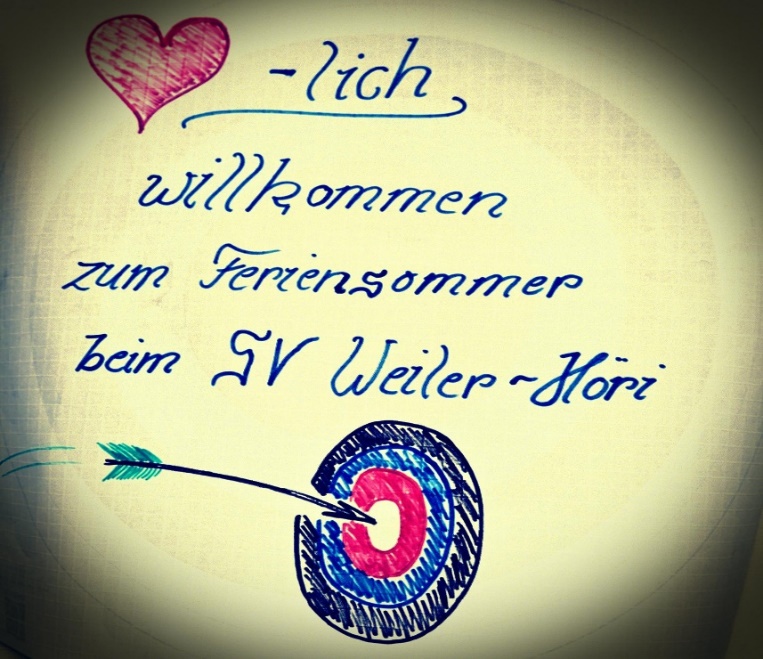 -lich
willkommen
zum Feriensommer
beim SV Weiler-Höri